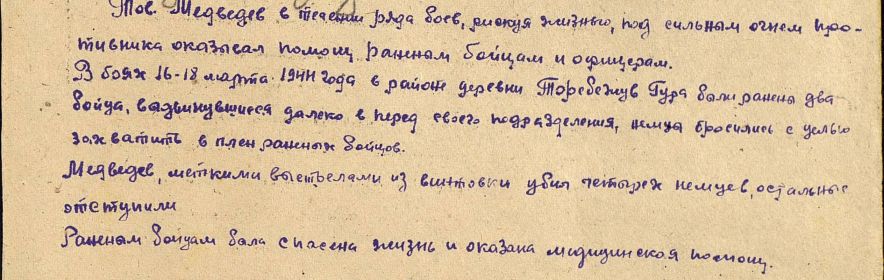 Тов. Медведев в течении ряда боев, рискуя жизнью, под сильным огнем про-
тивника оказывал помощ раненым бойцам и офицерам.
В боях 16-18 марта 1944 года в районе деревни Торебежув Гура были ранены два
бойца, выдвинувшиеся далеко в перед своего подразделения, немцы бросились с целью
захватить в плен раненых бойцов.
Медведев, меткими выстрелами из винтовки убил четырех немцев, остальные
отступили
Раненым бойцам была спасена жизнь и оказана медицинская помощ.